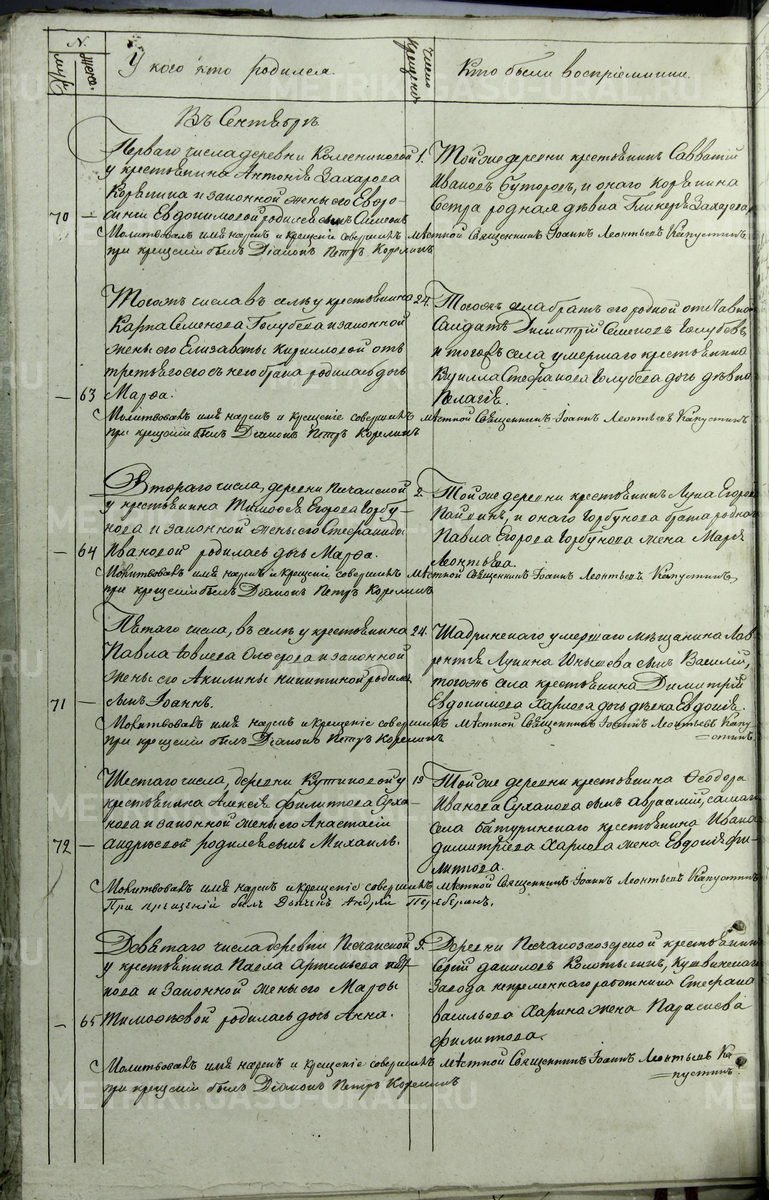 N.
муж.
жен.
У кого кто родился.
число крещенія
Кто были воспріемники.
Въ Сентябрѣ
Перваго числа деревни Колесниковой
у крестьянина Антонія Захарова
Корякина и законной жены его Евдо-
кіи Евдокимовой родился сынъ Симеонъ
70 —
1.
Той же деревни крестьянинъ Савватій
Ивановъ Буторовъ, и онаго Корякина
Сестра родная дѣвка Гликерія Захарова
Молитвовалъ имя нарекъ и Крещеніе совершилъ мѣстной Священникъ Іоаннъ Леонтьевъ Капустинъ
при крещеніи былъ Діаконъ Петръ Корелинъ
Тогожъ числа въ селѣ у крестьянина
Карпа Семенова Голубева и законной
жены его Елизаветы Кирилловой отъ
третьяго его съ нею брака родилась дочь
Марѳа.
— 63
24.
Тогожъ села братъ его родной отставной
Салдатъ Димитрій Семеновъ Голубевъ
и тогожъ села умершаго крестьянина
Кирилла Стефанова Голубева дочь дѣвка
Пелагія.
Молитвовалъ имя нарекъ и Крещеніе совершилъ мѣстной Священникъ Іоаннъ Леонтьевъ Капустинъ
при крещеніи былъ Діаконъ Петръ Корелинъ
Втораго числа, деревни Песчанской
у крестьянина Тимоѳея Егорова Горбу-
нова и законной жены его Стефаниды
Ивановой родилась дочь Марѳа.
— 64
2.
Той же деревни крестьянинъ Лука Егоровъ
и онаго Горбунова брата роднаго
Павла Егорова Горбунова жена Марія
Леонтьева.
Молитвовалъ имя нарекъ и Крещеніе совершилъ Мѣстной Священникъ Іоаннъ Леонтьевъ Капустинъ,
при крещеніи былъ Діаконъ Петръ Корелинъ
Пятаго числа, въ селѣ у крестьянина
Павла и законной
жены его Акилины Никитиной родился
сынъ Іоаннъ.
71 —
24.
Шадринскаго умершаго мѣщанина Лав-
рентія Лукина сынъ Василій,
тогожъ села крестьянина Димитрія
Евдокимова Харлова дочь дѣвка Евдокія.
Молитвовалъ имя нарекъ и Крещеніе совершилъ мѣстной Священникъ Іоаннъ Леонтьевъ Капу-
стинъ.
при крещеніи былъ Діаконъ Петръ Корелинъ
Шестаго числа, деревни Кутиковой у
крестьянина Алексія Филиппова Суха-
нова и законной жены его Анастасіи
Андреевой родился сынъ Михаилъ.
72 —
19
Той же деревни крестьянина Ѳеодора
Иванова Суханова сынъ Авраамій, самаго
села Батуринскаго крестьянина Ивана
Димитріева Харлова жена Евдокія Фи-
липпова.
Молитвовалъ имя нарекъ и Крещеніе совершилъ мѣстной Священникъ Іоаннъ Леонтьевъ Капустинъ
При крещеніи былъ Дьячекъ Андрей
Девятаго числа деревни Песчанской
у крестьянина Павла Артемьева
и Законной жены его Марѳы
Тимоѳеевой родилась дочь Анна.
— 65
9.
Деревни Песчанозаозерской крестьянинъ
Сергій Даниловъ Колотыгинъ, Кушвинскаго
Завода непременнаго работника Стефана
Васильева Харина жена Параскева
Филиппова.
Молитвовалъ имя нарекъ и крещеніе совершилъ мѣстной Священникъ Іоаннъ Леонтьевъ Ка-
пустинъ.
при крещеніи былъ Діаконъ Петръ Корелинъ